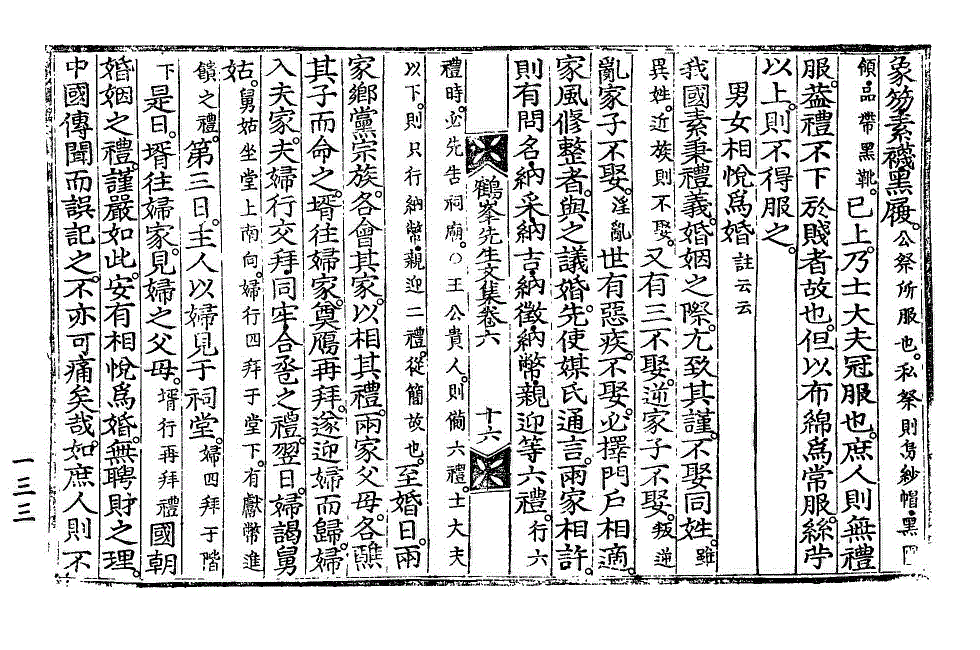 象笏素襪黑履。公祭所服也。私祭則烏紗帽黑團
領。品帶黑靴。已上。乃士大夫冠服也。庶人則無禮
服。盖禮不下於賤者故也。但以布綿爲常服。絲苧
以上。則不得服之。
男女相悅爲婚 註云云
我國素秉禮義。婚姻之際。尤致其謹。不娶同姓。雖
異姓。近族則不娶。又有三不娶。逆家子不娶。叛逆
亂家子不娶。淫亂 世有惡疾。不娶。必擇門戶相適。
家風修整者。與之議婚。先使媒氏通言。兩家相許。
則有問名,納采,納吉,納徵,納幣,親迎等六禮。行六
鶴峯先生文集卷六 十六
禮時。必先告祠廟。○王公貴人。則備六禮。士大夫
以下。則只行納幣,親迎二禮。從簡故也。至婚日。兩
家鄕黨宗族。各會其家。以相其禮。兩家父母。各醮
其子而命之。壻往婦家。奠鴈再拜。遂迎婦而歸。婦
入夫家。夫婦行交拜,同牢,合巹之禮。翌日。婦謁舅
姑。舅姑坐堂上南向。婦行四拜于堂下。有獻幣進
饋之禮。第三日。主人以婦見于祠堂。婦四拜于階
下 是日。壻往婦家。見婦之父母。壻行再拜禮 國朝
婚姻之禮。謹嚴如此。安有相悅爲婚。無聘財之理。
中國傳聞而誤記之。不亦可痛矣哉。如庶人則不
一三三